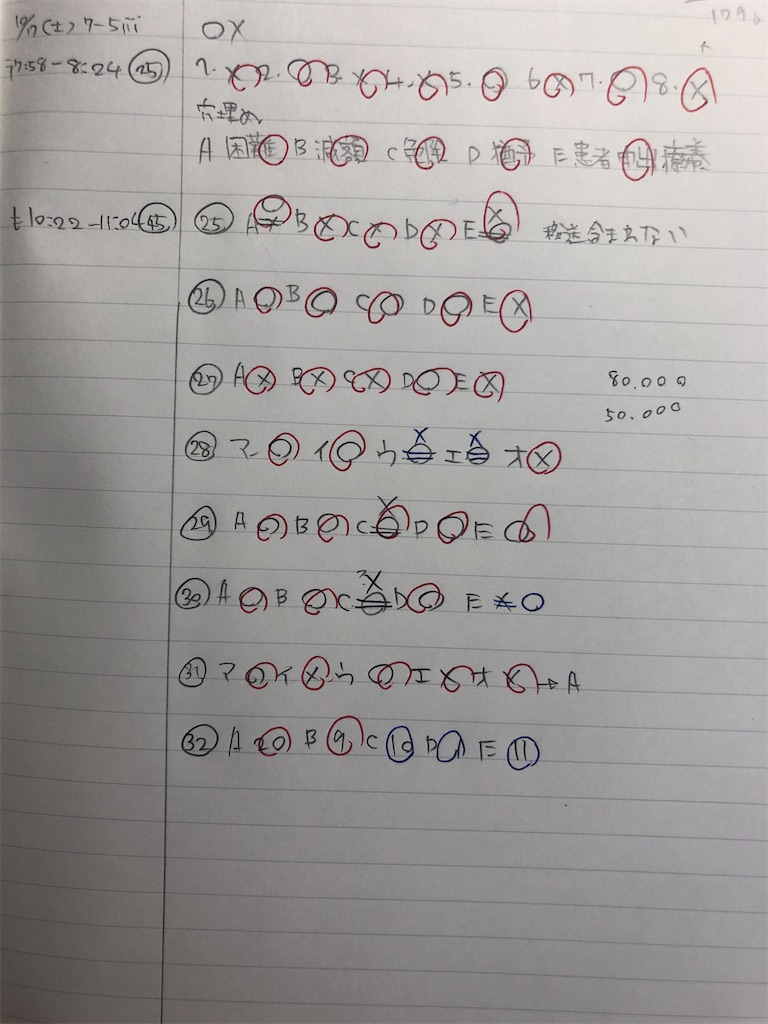 10/17(土) 7-5iii OX
7:58-8:24 (25) 1. X 2. O 3. X 4. X 5. O 6 X 7. O 8. X
穴埋め
A 困難 B 減額 C 免除 D 猶予 E 患者申出療養
10:22-11:04 (45) (25) A O B X C X D X E X 移送含まれない
(26) A O B O C O D O E X
(27) A X B X C X D O E X 80,000
50.000
(28) ア O イ O ウ X エ X オ X
(29) A O B O C X D O E O
(30) A O B O C X D O E O
(31) ア O イ X ウ O エ X オ X → A
(32) A 20 B 9 C 10 D 1 E 11